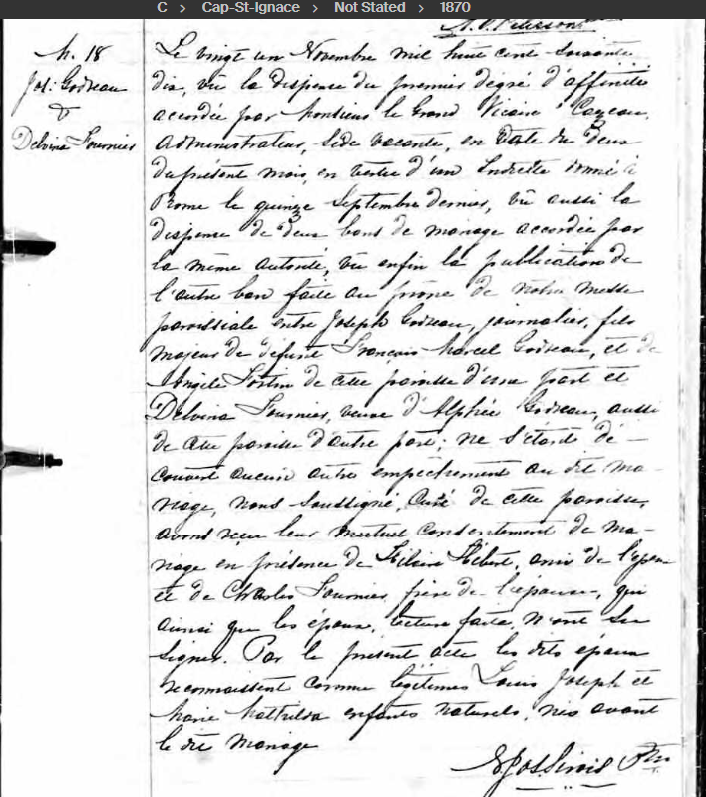 C > Cap-St-Ignace > Not Stated > 1870
M. 18
Jos: Godreau
&
Delvina Fournier
Le vingt un Novembre mil huit cent soixante
dix, vû la dispense du premier degré d'affinité
accordée par Monsieur le Grand Vicaire Cazeau,
Administrateur, Sede vacante, en date du deux
du présent mois, en vertu d'un Indulte donné à
Rome le quinze Septembre dernier, vû aussi la
dispense de deux bans de mariage accordée par
la même autorité, vû enfin la publication de
l'autre ban faite au prône de notre messe
paroissiale entre Joseph Godreau, journalier, fils
majeur de défunt François Marcel Godreau, et de
Angèle Fortin de cette paroisse d'une part et
Delvina Fournier, veuve d'Alphée Godreau, aussi
de cette paroisse d'autre part; ne s'étant dé-
couvert aucun autre empêchement au dit ma-
riage, nous soussigné, Curé de cette paroisse,
avons reçu leur mutuel consentement de ma-
riage en présence de Hilaire Hébert, ami de l'époux
et de Charles Fournier, frère de l'épouse, qui
ainsi que les époux, lecture faite, n'ont su
signer. Par le présent acte les dits époux
reconnaissent comme légitimes Louis Joseph et
Marie Mathilda enfants naturels, nés avant
le dit mariage
Ptre